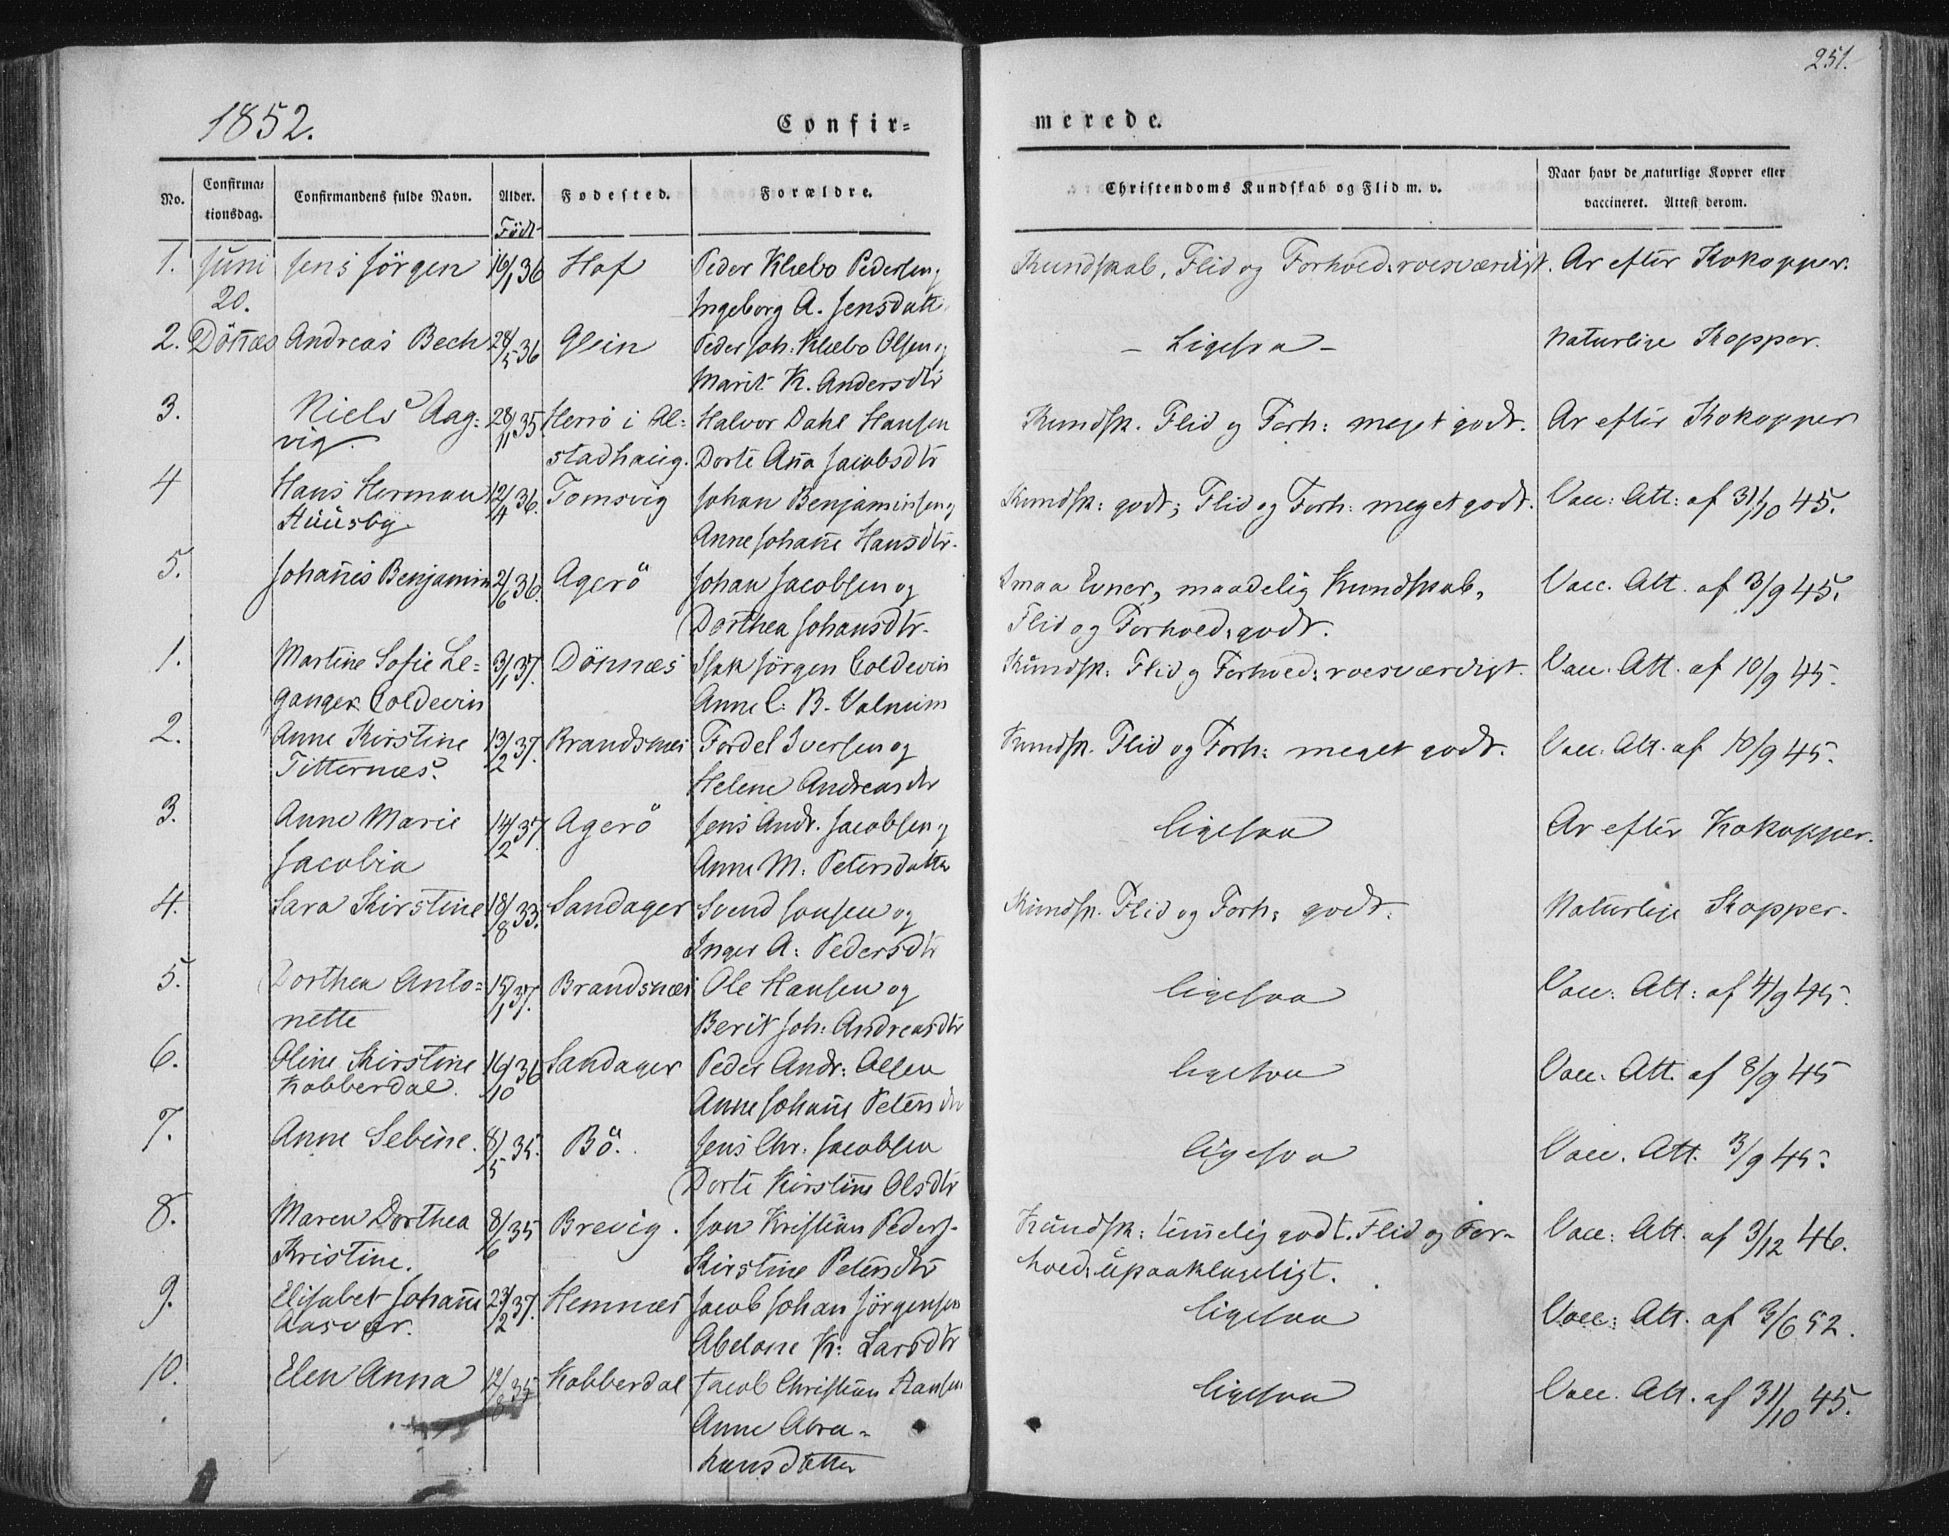 251.
1852. Confir= merede.
No. Confirma= tionsdag. Confirmandens fulde Navn. Alder. Fødested. Forældre. Christendoms Kundskab og Flid m. v. Naar havt de naturlige Kopper eller vaccineret. Attest derom.
Födt
1. Juni Jens Jörgen 16/1 36 Hof Peder Klæbo Pedersen og Kundskab, Flid og Forhold: roesværdigt. Ar efter Kokopper.
20. Ingeborg A. Jensdatt.
2. Dönæs Andreas Bech 28/5 36 Glein Peder Joh: Klæbo Olsen og - Ligesaa - Naturlige Kopper.
Marit K. Andersdtr
3. Niels Aag= 28/11 35. Herrö i Al= Halvor Dahl Hansen Kundsk. Flid og Forh: meget godt. Ar efter Kokopper
vig. stadhaug. Dorte Aña Jacobsdtr
4 Hans Herman 12/4 36. Tomsvig Johan Benjaminsen og Kundsk: godt; Flid og Forh: meget godt. Vacc: Att: af 31/10 45.
Huusby. Anne Johañe Hansdtr.
5. Johañes Benjamin 2/6 36. Agerö Johan Jacobsen og Smaa Evner, maadelig Kundskab, Vacc. Att. af 3/9 45.
Dorthea Johansdtr. Flid og Forhold: godt.
1. Martine Sofie Le= 3/1 37. Dönnæs Isak Jörgen Coldevin Kundsk: Flid og Forhold: roesværdigt. Vacc. Att. af 10/9 45.
ganger Coldevin Anne C: B. Valnum
2. Anne Kirstine 13/2 37. Brandsnæs Fordel Iversen og Kundsk. Flid og Forh: meget godt. Vacc. Att. af 10/9 45.
Titternæs. Helene Andreasdtr
3. Anne Marie 14/2 37. Agerö Jens Andr. Jacobsen og ligesaa Ar efter Kokopper.
Jacobia Anne M: Petersdatter
4. Sara Kirstine 18/8 33. Sandager Svend Jonsen og Kundsk. Flid og Forh: godt. Naturlige Kopper.
Inger A: Pedersdtr
5. Dorthea Anto= 15/1 37. Brandsnæs Ole Hansen og ligesaa Vacc: Att: af 4/9 45.
nette Berit Joh: Andreasdtr
6. Oline Kirstine 16/10 36 Sandager Peder Andr: Olsen ligesaa Vacc. Att. af 8/9 45
Kobberdal. Anne Johañe Petersdtr
7. Anne Sebine. 8/5 35. Bö. Jens Chr. Jacobsen ligesaa Vacc. Att. 3/9 45.
Dorte Kirstine Olsdtr
8. Maren Dorthea 8/6 35 Brevig. Jon Kristian Peders. Kundsk: temelig godt. Flid og For= Vacc: Att. af 3/12 46.
Kristine. Kirstine Petersdtr hold: upaaklageligt.
9. Elisabet Johañe 23/2 37. Hemnæs Jacob Johan Jörgensen ligesaa Vacc: Att. af 3/6 52.
Aasvær. Abelone K: Larsdtr
10. Elen Anna 12/8 35 Kobberdal Jacob Christian Hansen ligesaa Vacc. Att. af 31/10 45.
Anne Abra=
hamsdatter